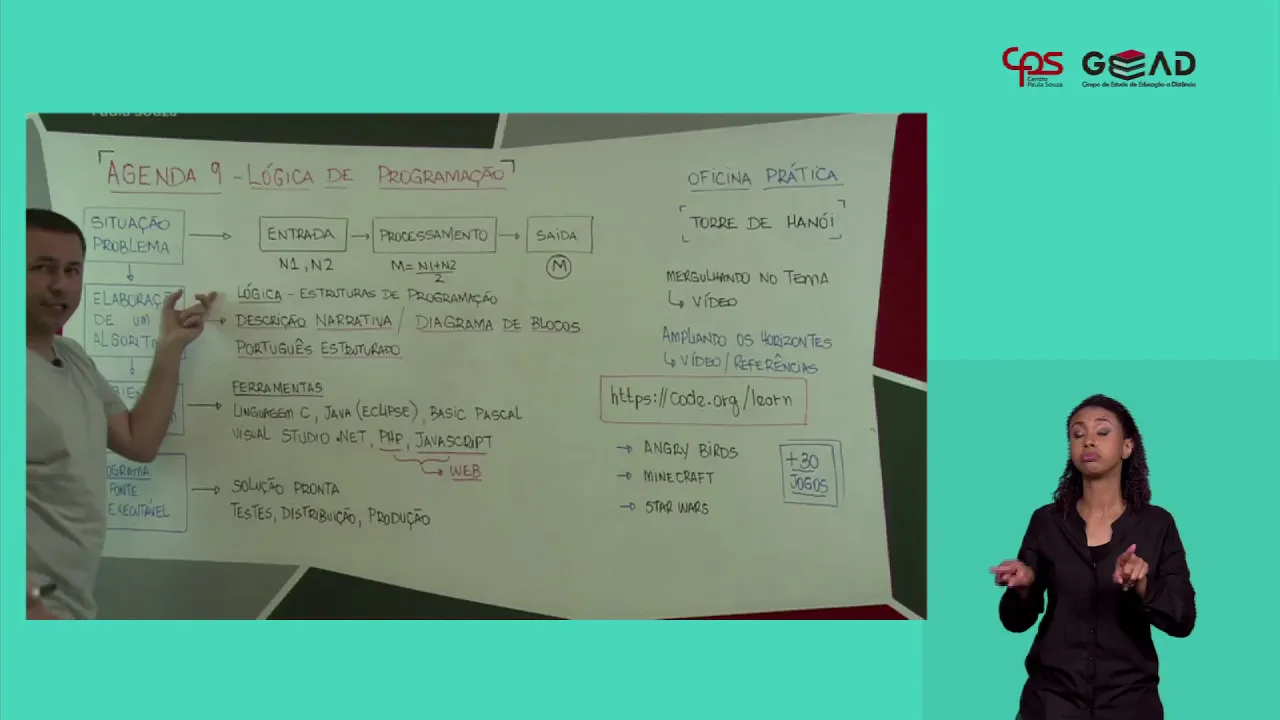 CPS
Centro
Paula Souza
GEEAD
Grupo de Estudo de Educação a Distância
AGENDA 9 - LÓGICA DE PROGRAMAÇÃO
SITUAÇÃO
PROBLEMA
ENTRADA
PROCESSAMENTO
SAÍDA
N1, N2
M = N1+N2
2
M
ELABORAÇÃ
DE UM
ALGORITM
LÓGICA - ESTRUTURAS DE PROGRAMAÇÃO
DESCRIÇÃO NARRATIVA / DIAGRAMA DE BLOCOS
PORTUGUÊS ESTRUTURADO
FERRAMENTAS
LINGUAGEM C, JAVA (ECLIPSE), BASIC PASCAL
VISUAL STUDIO .NET, PHP, JAVASCRIPT
WEB
OGRAMA
FONTE
EXECUTÁVEL
SOLUÇÃO PRONTA
TESTES, DISTRIBUIÇÃO, PRODUÇÃO
OFICINA PRÁTICA
TORRE DE HANÓI
MERGULHANDO NO TEMA
VÍDEO
AMPLIANDO OS HORIZONTES
VÍDEO/REFERÊNCIAS
https://code.org/learn
ANGRY BIRDS
MINECRAFT
STAR WARS
+30
JOGOS